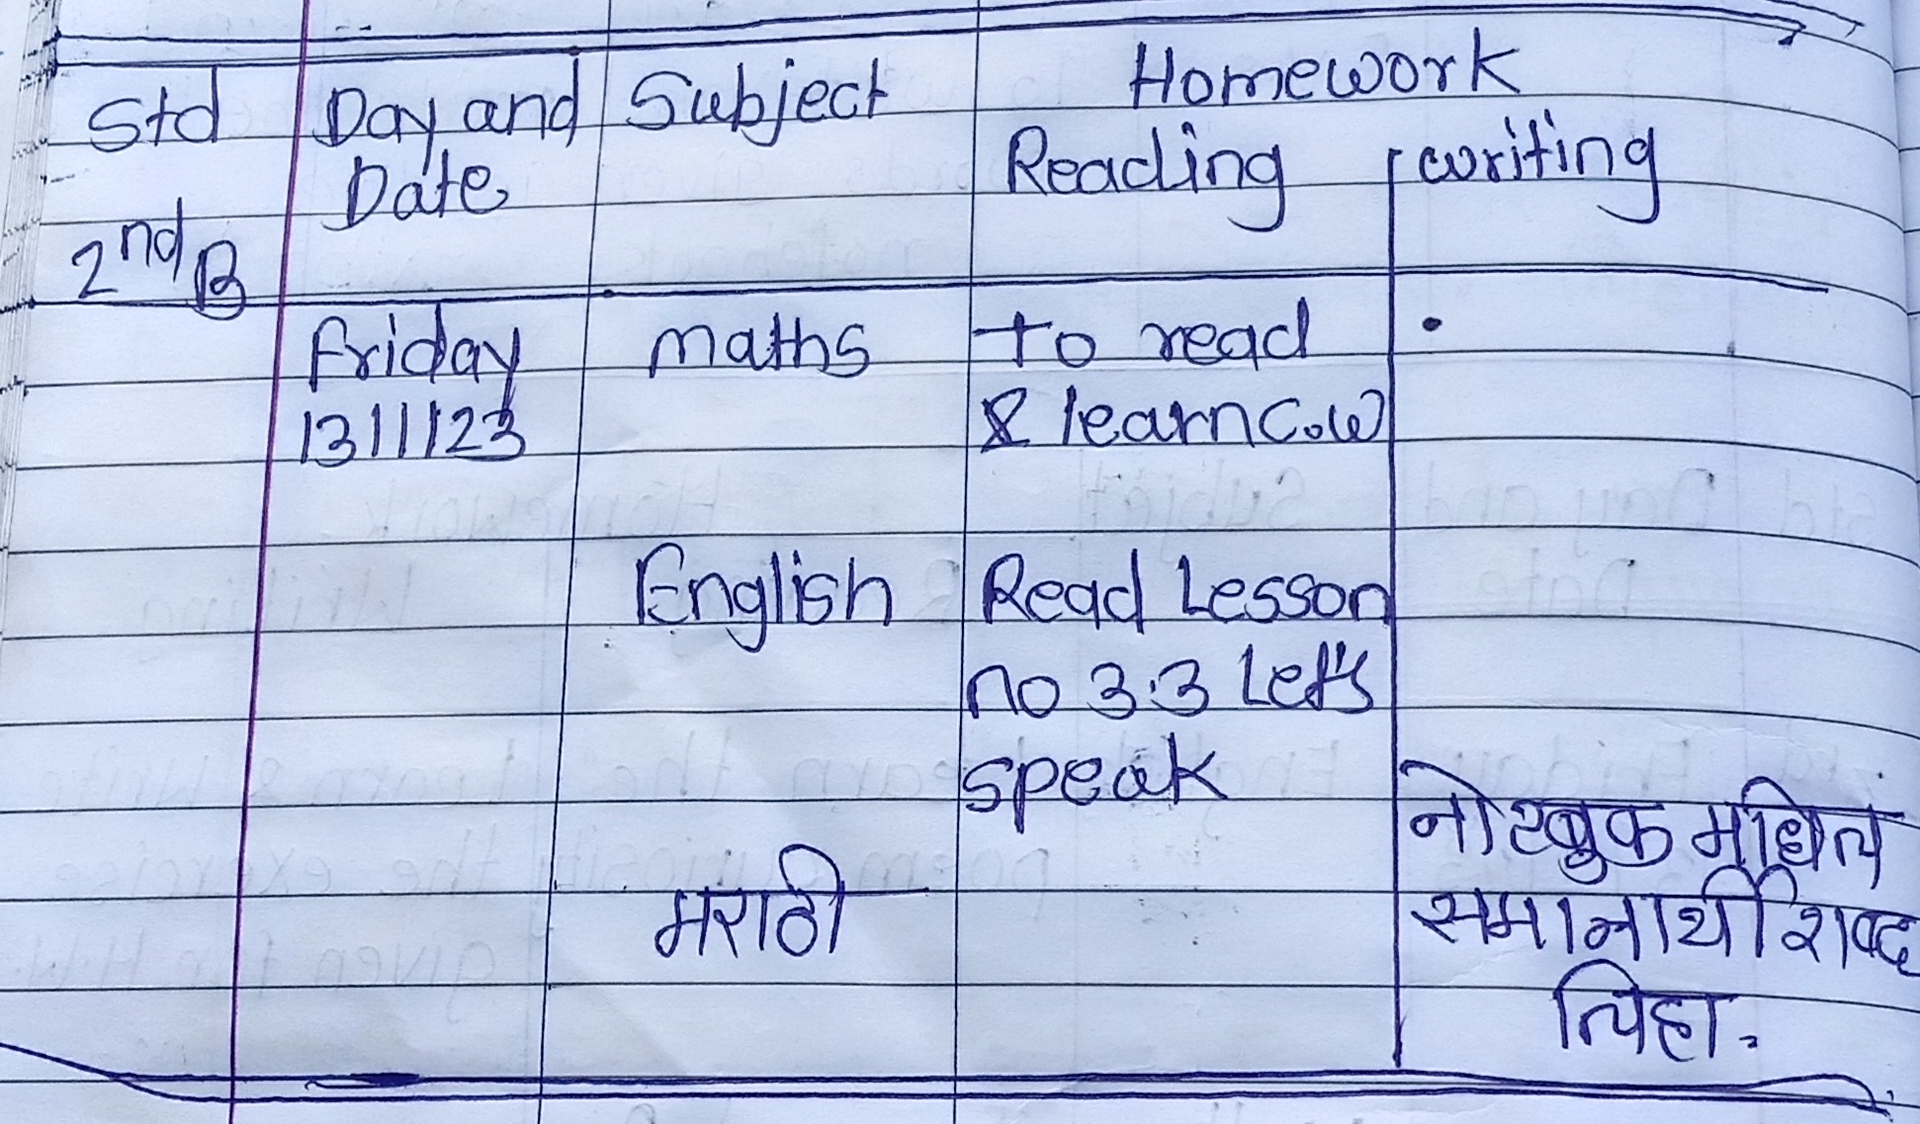 Std Day and Subject Homework
Date Reading writing
2nd B
Friday maths to read
13/1/23 & learn C.W
English Read Lesson
no 3.3 Let's
speak
नोटबुक मधिल
मराठी समानार्थी शब्द
लिहा.